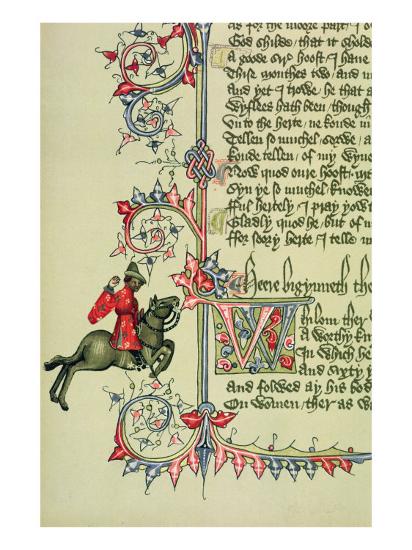 as for the moore part / I
God shilde / that it sholde
A goode sire hoost / I haue
Thise monthes two / and
And yet / I trowe he that
Wyflees hath been / though
Vn to the herte / ne koude
Tellen so muchel sorwe /
koude tellen / of my wyues
Now quod oure hoost
Syn ye so muchel knowen
fful hertely / I pray yow
Gladly quod he / but of
ffor soory herte / I telle
Heere bigynneth the
Whilom ther
A worthy kn
In which he
And sixty y
And folwed ay his bod
On wommen / ther as w